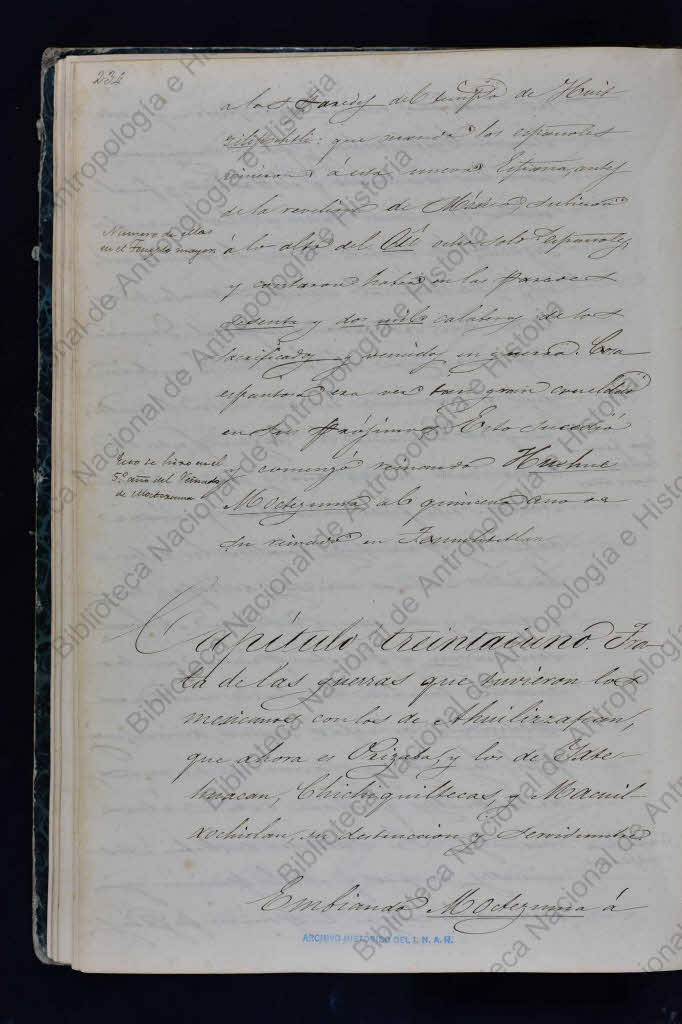 234
a las Paredes del templo de Huit
zilopochtli: que cuando los españoles
vinieron á esta nueva España, antes
de la revelion de México, subieron
Número de ellas
en el Templo mayor.
á lo alto del Cú ocho solo Españoles,
y contaron había en las Paredes
sesenta y dos mil calabernas de los
sacrificados y vencidos en guerra. Cosa
espantosa era ver tan gran crueldad
en sus Prójimos. Esto sucedió
Esto se hizo en el
5.º año del Reinado
de Moctezuma
y comenzó reinando Huehue
Moctezuma al quinceno año de
su reinado en Tenuchtitlan
Capítulo treintaiuno. Tra-
ta de las guerras que tuvieron los
mexicanos con los de Ahuilizzapan,
que ahora es Orizaba, y los de
Chichiquiltecas, y Macuil
xochitlan, su destruccion y servidumbre
Embiando Moctezuma á
ARCHIVO HISTÓRICO DEL I. N. A. H.
Biblioteca Nacional de Antropología e Historia